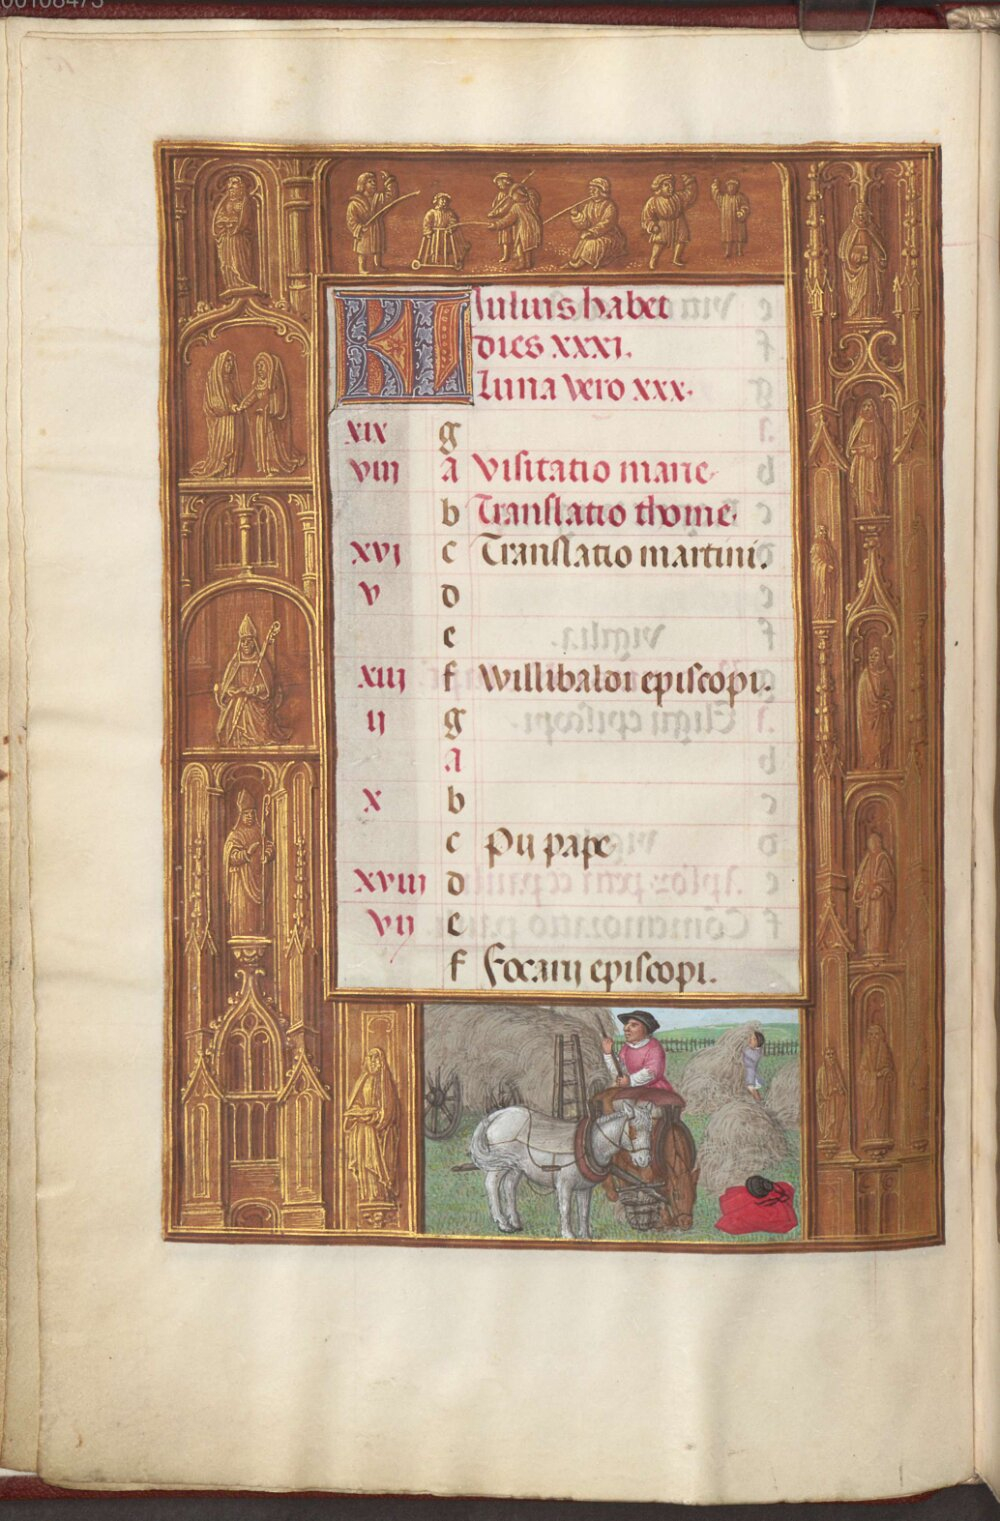 00108473
KL Iulius habet
dies xxxi.
Luna vero xxx.
xix g
viii A Visitatio marie
b Translatio thome.
xvi c Translatio martini.
v d
e
xiii f Willibaldi episcopi.
ii g
A
x b
c Pii pape
xviii d
vii e
f Focarii episcopi.